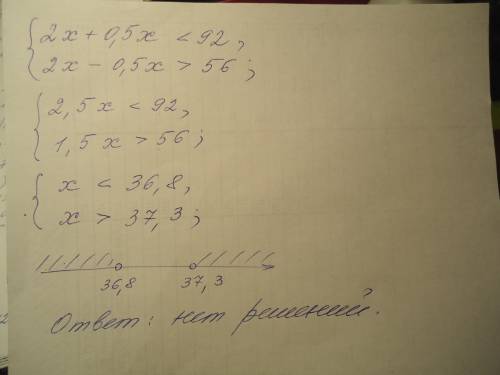 { 2x + 0,5x < 92,
2x - 0,5x > 56;
{ 2,5x < 92,
1,5x > 56;
{ x < 36,8,
x > 37,3;
36,8 37,3
Ответ: нет решений.